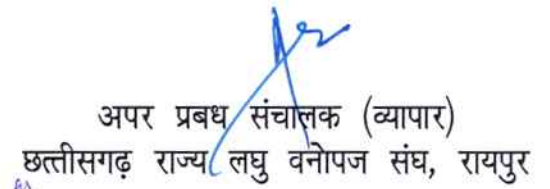 अपर प्रबध संचालक (व्यापार)
छत्तीसगढ़ राज्य लघु वनोपज संघ, रायपुर